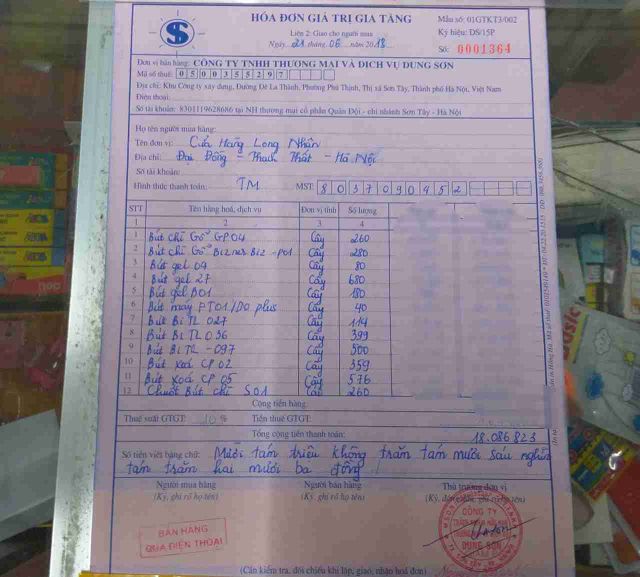 HÓA ĐƠN GIÁ TRỊ GIA TĂNG
Liên 2: Giao cho người mua
Ngày 21 tháng 06 năm 2018
Mẫu số: 01GTKT3/002
Ký hiệu: DS/15P
Số: 0001364
Đơn vị bán hàng: CÔNG TY TNHH THƯƠNG MẠI VÀ DỊCH VỤ DUNG SƠN
Mã số thuế: 0500355297
Địa chỉ: Khu Công ty xây dựng, Đường Đê La Thành, Phường Phú Thịnh, Thị xã Sơn Tây, Thành phố Hà Nội, Việt Nam
Điện thoại:
Số tài khoản: 8301119628686 tại NH thương mại cổ phần Quân Đội - chi nhánh Sơn Tây - Hà Nội
Họ tên người mua hàng:
Tên đơn vị: Cửa Hàng Long Nhân
Địa chỉ: Đại Đồng - Thạch Thất - Hà Nội
Số tài khoản:
Hình thức thanh toán: TM MST: 8037090452
STT Tên hàng hoá, dịch vụ Đơn vị tính Số lượng
1 2 3 4
1 Bút chì Gỗ GP04 Cây 260
2 Bút chì Gỗ Biznes Biz - P01 Cây 280
3 Bút gel 04 Cây 80
4 Bút gel 27 Cây 680
5 Bút gel B01 Cây 180
6 Bút máy FT01/DO plus Cây 40
7 Bút Bi TL 027 Cây 114
8 Bút Bi TL 036 Cây 399
9 Bút Bi TL - 097 Cây 500
10 Bút xoá CP 02 Cây 359
11 Bút xoá CP 05 Cây 576
12 Chuốt Bút chì S01 Cây 260
Cộng tiền hàng:
Thuế suất GTGT: 10% Tiền thuế GTGT:
Tổng cộng tiền thanh toán: 18.086.823
Số tiền viết bằng chữ: Mười tám triệu không trăm tám mươi sáu nghìn
tám trăm hai mươi ba đồng
Người mua hàng Người bán hàng Thủ trưởng đơn vị
(Ký, ghi rõ họ tên) (Ký, ghi rõ họ tên)
BÁN HÀNG
QUA ĐIỆN THOẠI
CÔNG TY
DUNG SƠN
(Cần kiểm tra, đối chiếu khi lập, giao, nhận hoá đơn)